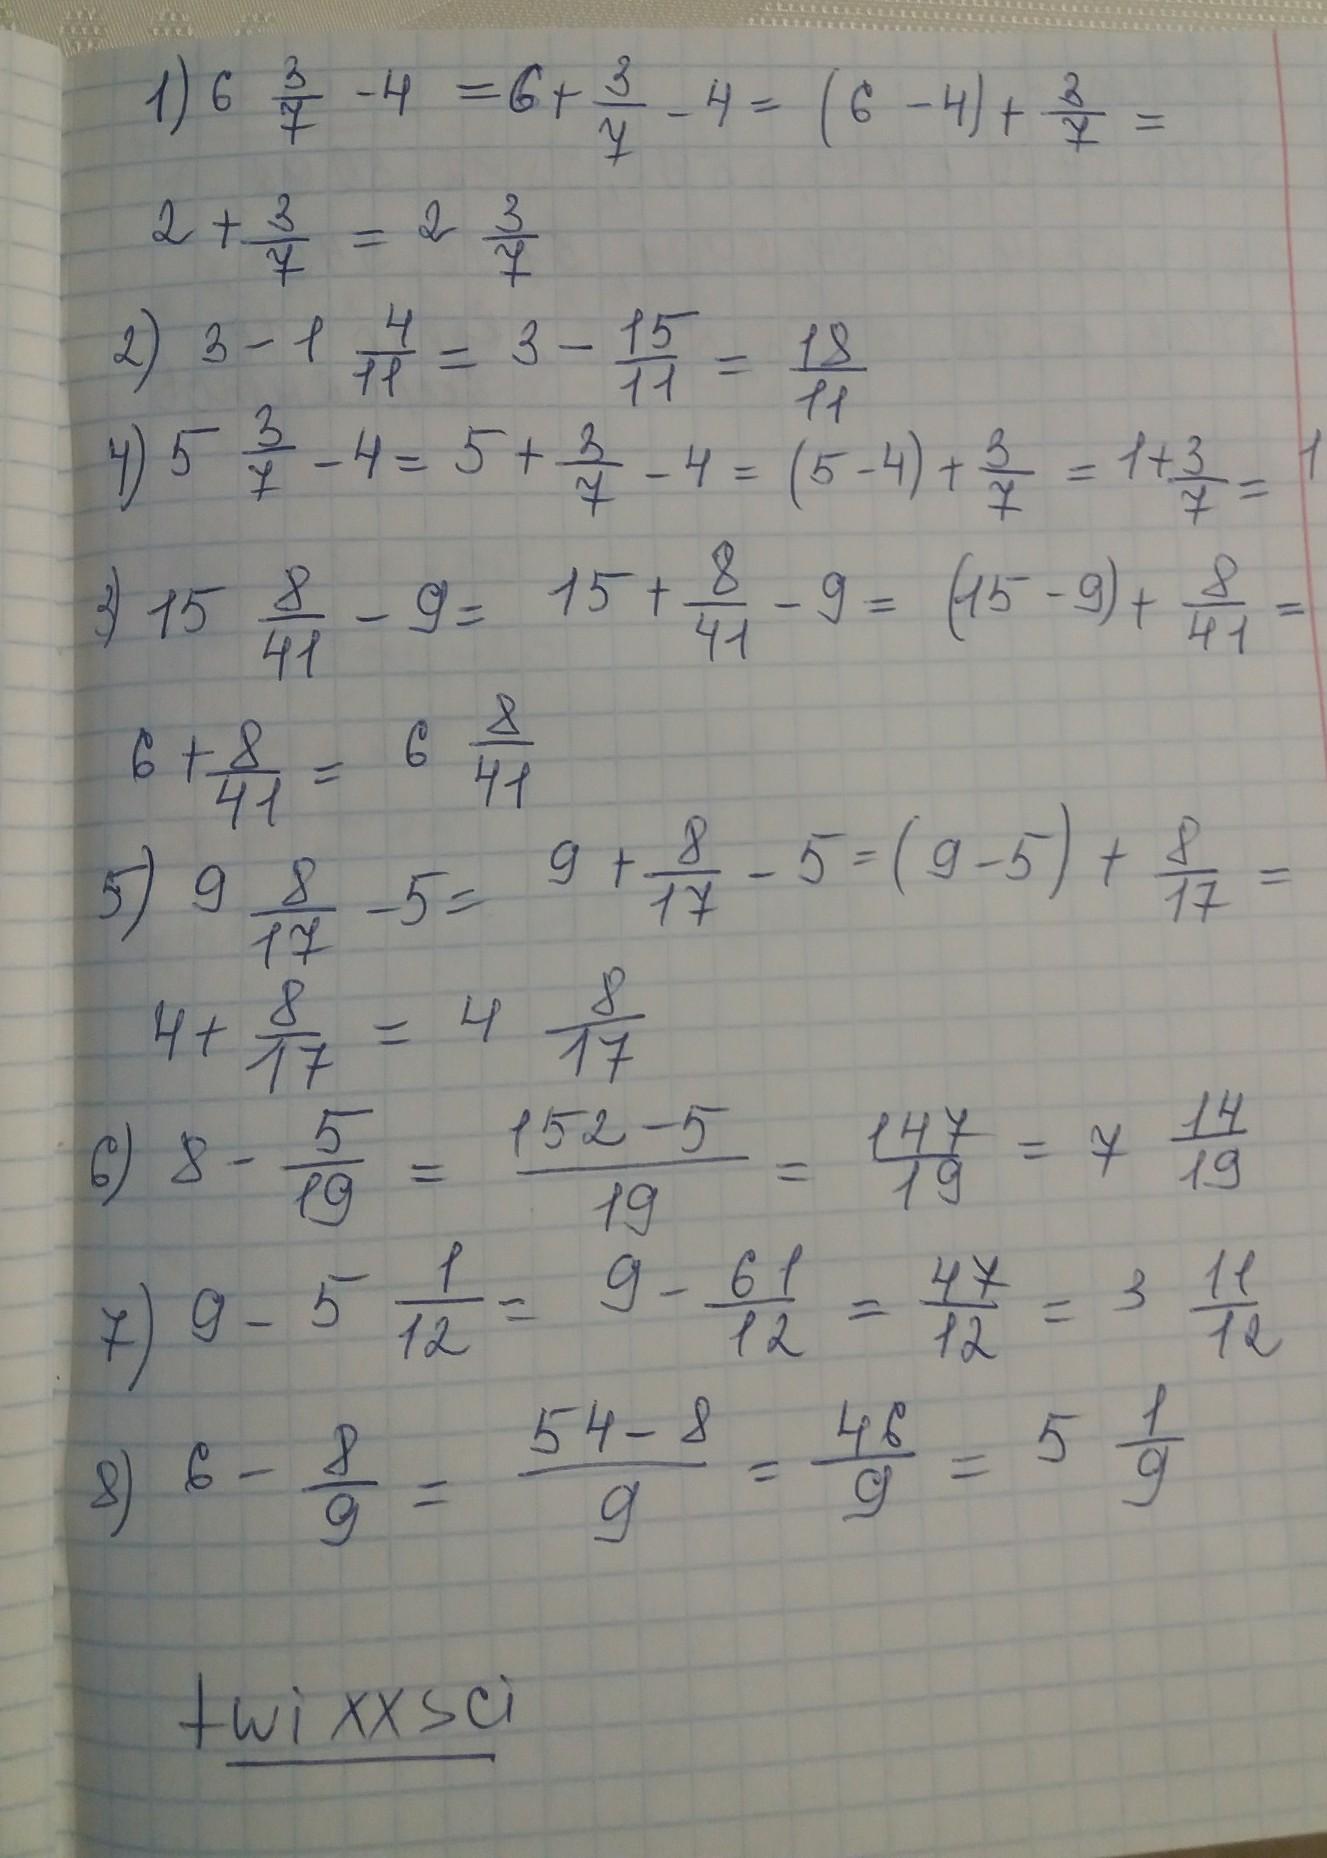 1) 6 3/7 - 4 = 6 + 3/7 - 4 = (6 - 4) + 3/7 =
2 + 3/7 = 2 3/7
2) 3 - 1 4/11 = 3 - 15/11 = 18/11
4) 5 3/7 - 4 = 5 + 3/7 - 4 = (5 - 4) + 3/7 = 1 + 3/7 = 1
3) 15 8/41 - 9 = 15 + 8/41 - 9 = (15 - 9) + 8/41 =
6 + 8/41 = 6 8/41
5) 9 8/17 - 5 = 9 + 8/17 - 5 = (9 - 5) + 8/17 =
4 + 8/17 = 4 8/17
6) 8 - 5/19 = (152 - 5)/19 = 147/19 = 7 14/19
7) 9 - 5 1/12 = 9 - 61/12 = 47/12 = 3 11/12
8) 6 - 8/9 = (54 - 8)/9 = 46/9 = 5 1/9
twixxsci